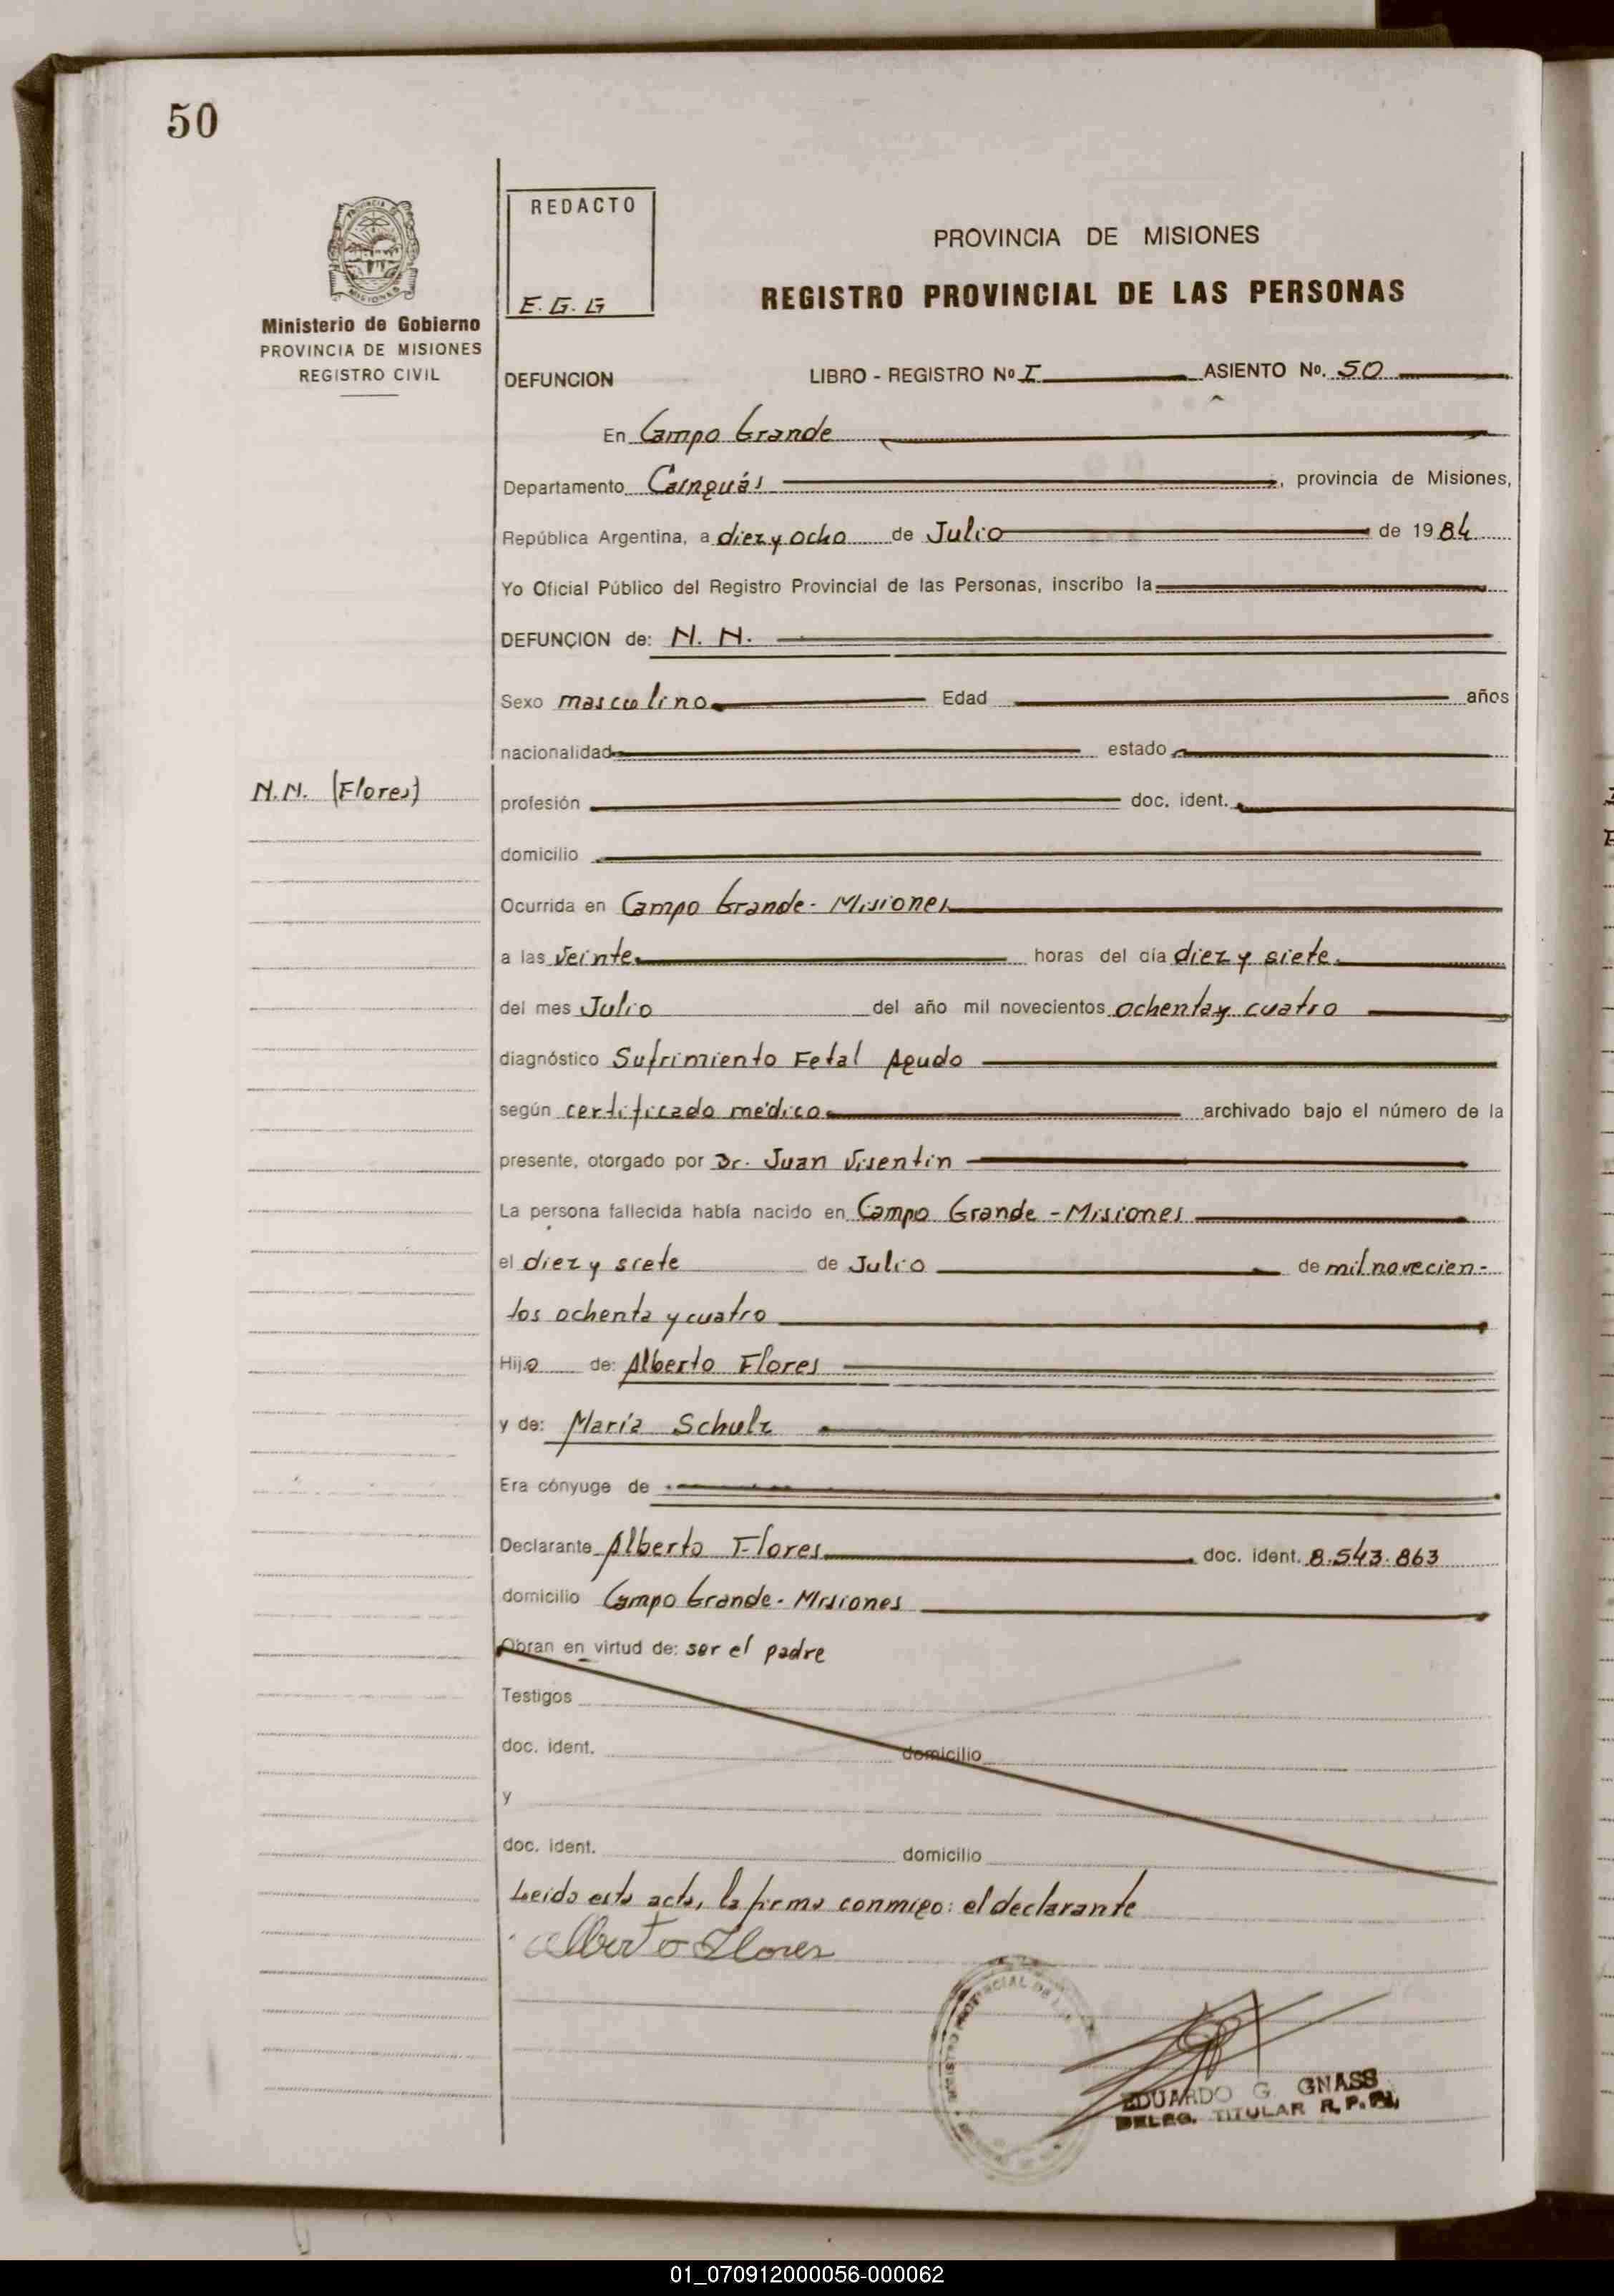 50
REDACTO
E.G.G
PROVINCIA DE MISIONES
REGISTRO PROVINCIAL DE LAS PERSONAS
PROVINCIA
MISIONES
Ministerio de Gobierno
PROVINCIA DE MISIONES
REGISTRO CIVIL
DEFUNCION LIBRO - REGISTRO Nº I ASIENTO No. 50
En Campo Grande
Departamento Cainguás, provincia de Misiones,
República Argentina, a diez y ocho de Julio de 1984
Yo Oficial Público del Registro Provincial de las Personas, inscribo la
DEFUNCION de: N. N.
Sexo masculino Edad años
nacionalidad estado
N.N. (Flores)
profesión doc. ident.
domicilio
Ocurrida en Campo Grande - Misiones
a las veinte horas del día diez y siete
del mes Julio del año mil novecientos ochenta y cuatro
diagnóstico Sufrimiento Fetal Agudo
según certificado médico archivado bajo el número de la
presente, otorgado por Dr. Juan Visentin
La persona fallecida había nacido en Campo Grande - Misiones
el diez y siete de Julio de mil novecien-
tos ochenta y cuatro
Hijo de: Alberto Flores
y de: María Schulz
Era cónyuge de
Declarante Alberto Flores doc. ident. 8.543.863
domicilio Campo Grande - Misiones
Obran en virtud de: ser el padre
Testigos
doc. ident. domicilio
y
doc. ident. domicilio
Leida esta acta, la firma conmigo: el declarante
Alberto Flores
EDUARDO G. GNASS
DELEG. TITULAR R.P.P.
01_070912000056-000062